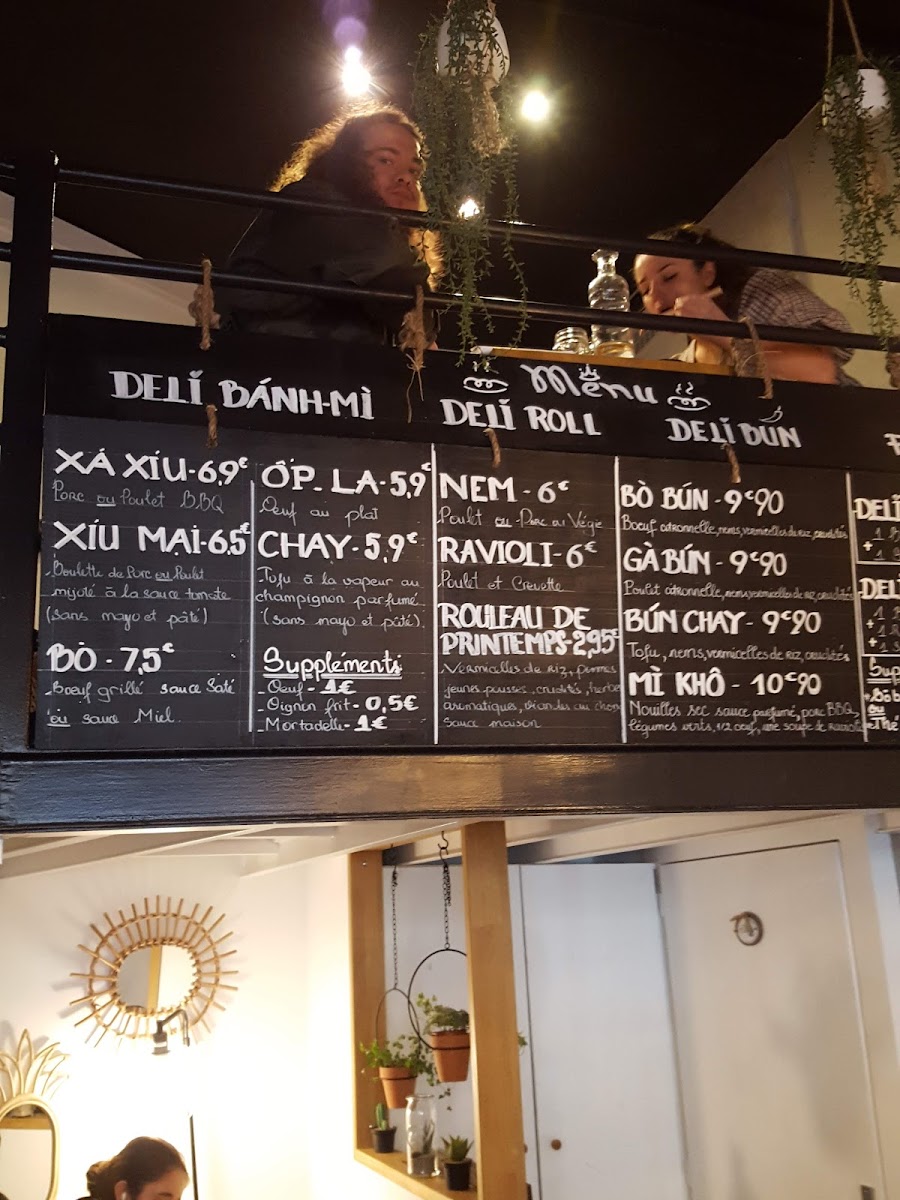 Menu
DELI BÁNH-MÌ
XÁ XÍU-6,9€
Porc ou Poulet BBQ
XÍU MẠI-6,5€
Boulette de Porc ou Poulet
myoté à la sauce tomate
(sans mayo et pâté)
BÒ - 7,5€
Boeuf grillé sauce Saté
ou sauce Miel
ỐP-LA-5,9€
Oeuf au plat
CHAY-5,9€
Tofu à la vapeur au
champignon parfumé
(sans mayo et pâté)
Suppléments
- Oeuf - 1€
- Oignon frit - 0,5€
- Mortadelle - 1€
DELI ROLL
NEM - 6€
Poulet ou Porc ou Végie
RAVIOLI - 6€
Poulet et Crevette
ROULEAU DE
PRINTEMPS-2,95€
Vermicelles de riz, pommes
jeunes pousses, crudités, herbes
aromatiques, viandes au choix
sauce maison
DELI BÚN
BÒ BÚN - 9€90
Boeuf citronnelle, nems, vermicelles de riz, crudités
GÀ BÚN - 9€90
Poulet citronnelle, nems, vermicelles de riz, crudités
BÚN CHAY - 9€90
Tofu, nems, vermicelles de riz, crudités
MÌ KHÔ - 10€90
Nouilles sec sauce parfumé, porc BBQ,
légumes verts, 1/2 oeuf, une soupe de ravioli
DELI
+
DELI
+
+
Supp
ou
Thé